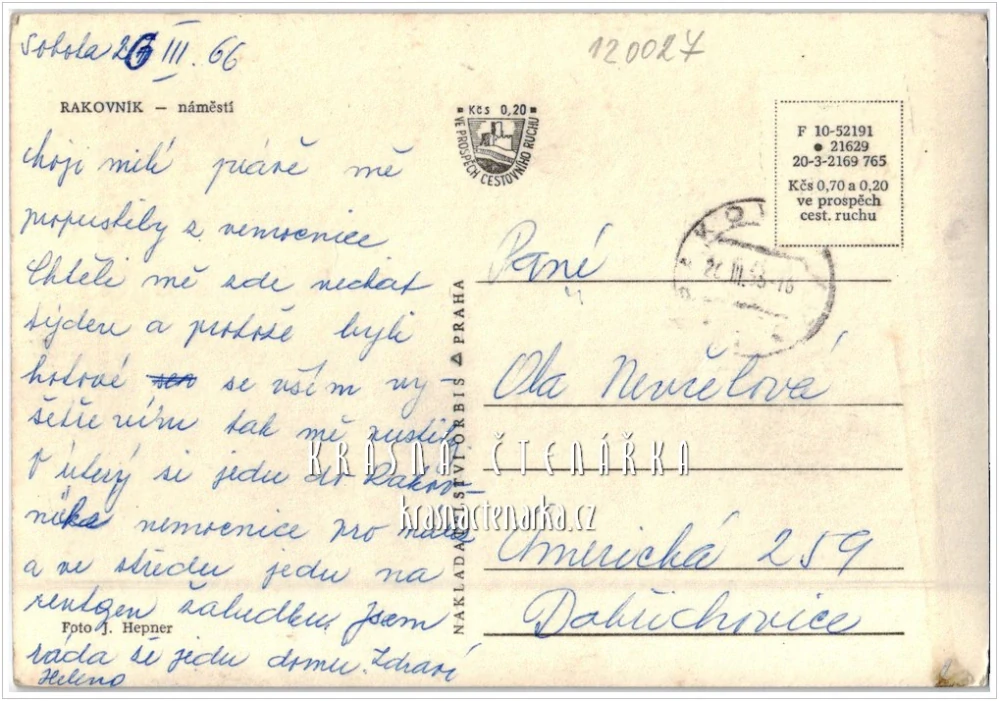 Sobota 26 III. 66
120027
RAKOVNÍK — náměstí
Kčs 0,20
VE PROSPĚCH CESTOVNÍHO RUCHU
F 10-52191
21629
20-3-2169 765
Kčs 0,70 a 0,20
ve prospěch
cest. ruchu
moji milí právě mě
propustily z nemocnice
Chtěli mě zde nechat
týden a protože byli
hotové se vším vy-
šetřením tak mě pustily
V úterý si jedu do Rakov-
níka nemocnice pro
a ve středu jedu na
rentgen žaludku. Jsem
ráda že jedu domu. Zdraví
Helena
Foto J. Hepner
NAKLADATELSTVÍ ORBIS PRAHA
Paní
Ola Nevřelová
Americká 259
Dobřichovice
KRÁSNÁ ČTENÁŘKA
krasnactenarka.cz